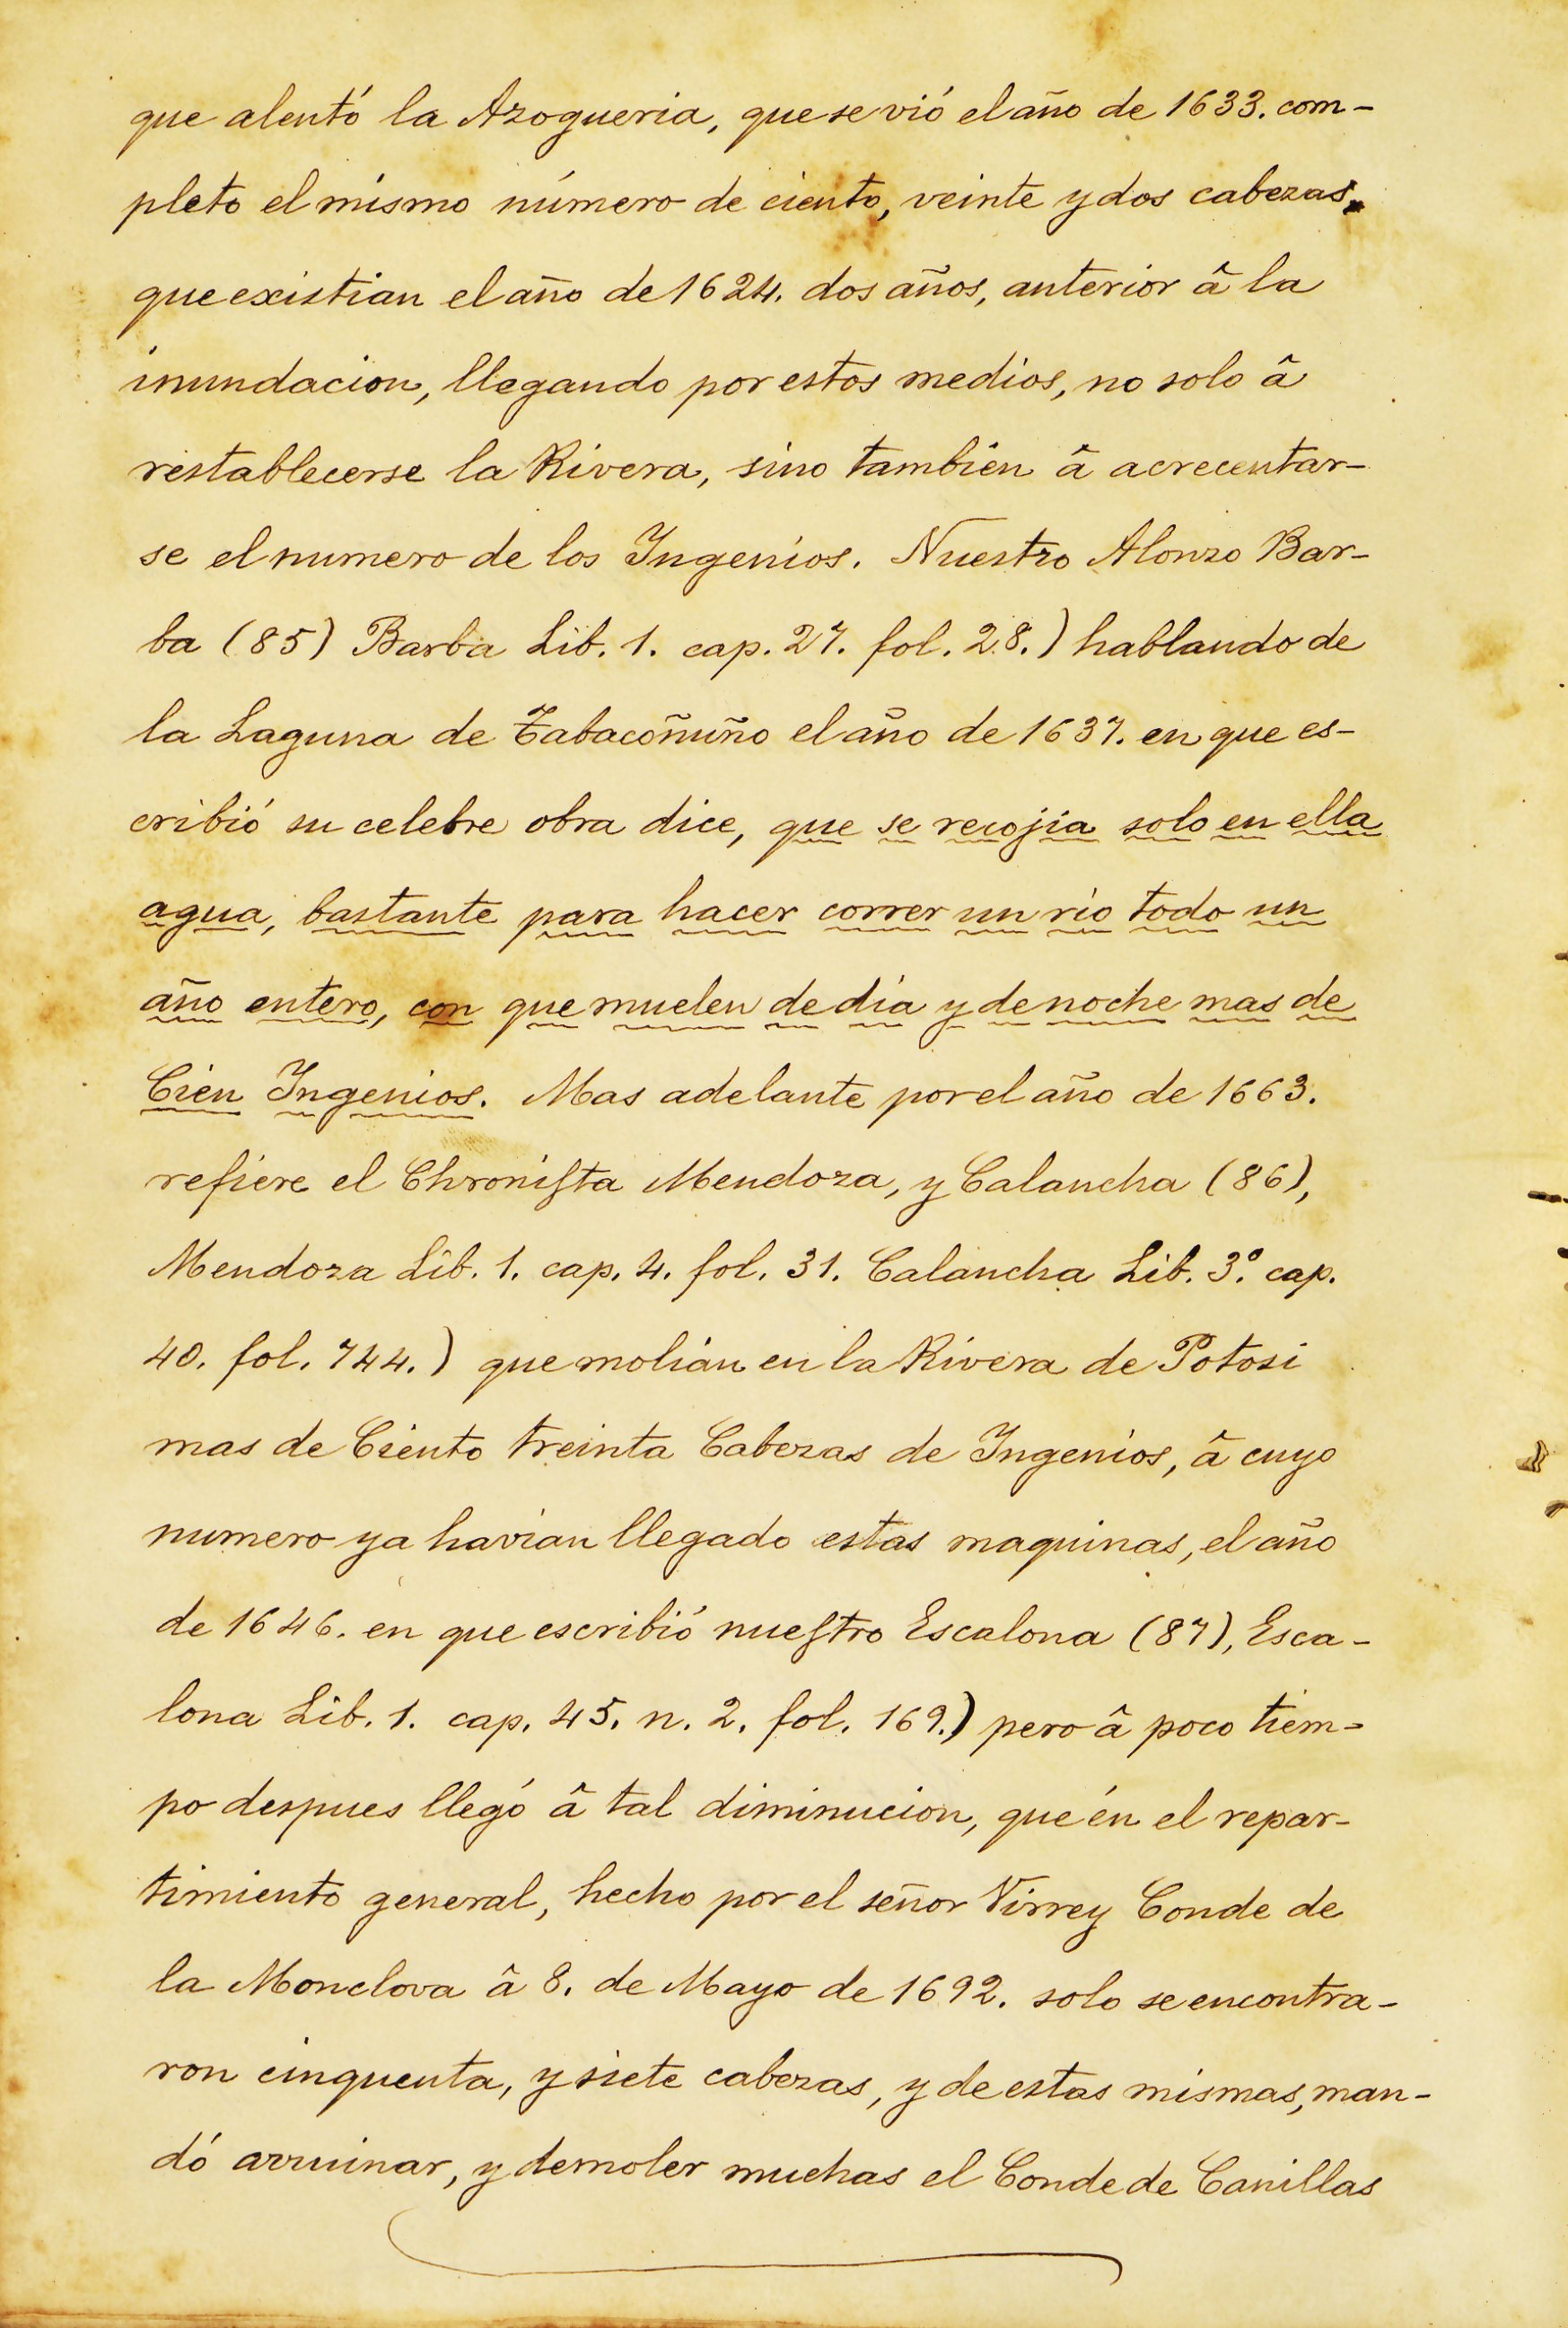 que alentó la Azogueria, que se vió el año de 1633. com-
pleto el mismo número de ciento, veinte y dos cabezas,
que existian el año de 1624. dos años, anterior â la
inundacion, llegando por estos medios, no solo â
restablecerse la Rivera, sino tambien â acrecentar-
se el numero de los Ingenios. Nuestro Alonzo Bar-
ba (85) Barba Lib. 1. cap. 27. fol. 28.) hablando de
la Laguna de Tabacoñuño el año de 1637. en que es-
cribió su celebre obra dice, que se recojia solo en ella
agua, bastante para hacer correr un rio todo un
año entero, con que muelen de dia y de noche mas de
Cien Ingenios. Mas adelante por el año de 1663.
refiere el Chroniſta Mendoza, y Calancha (86),
Mendoza Lib. 1. cap. 4. fol. 31. Calancha Lib. 3.º cap.
40. fol. 744.) que molian en la Rivera de Potosi
mas de Ciento treinta Cabezas de Ingenios, â cuyo
numero ya havian llegado estas maquinas, el año
de 1646. en que escribió nueſtro Escalona (87), Esca-
lona Lib. 1. cap. 45. n. 2. fol. 169.) pero â poco tiem-
po despues llegó â tal diminucion, que én el repar-
timiento general, hecho por el señor Virrey Conde de
la Monclova â 8. de Mayo de 1692. solo se encontra-
ron cinquenta, y siete cabezas, y de estas mismas, man-
dó arruinar, y demoler muchas el Conde de Canillas